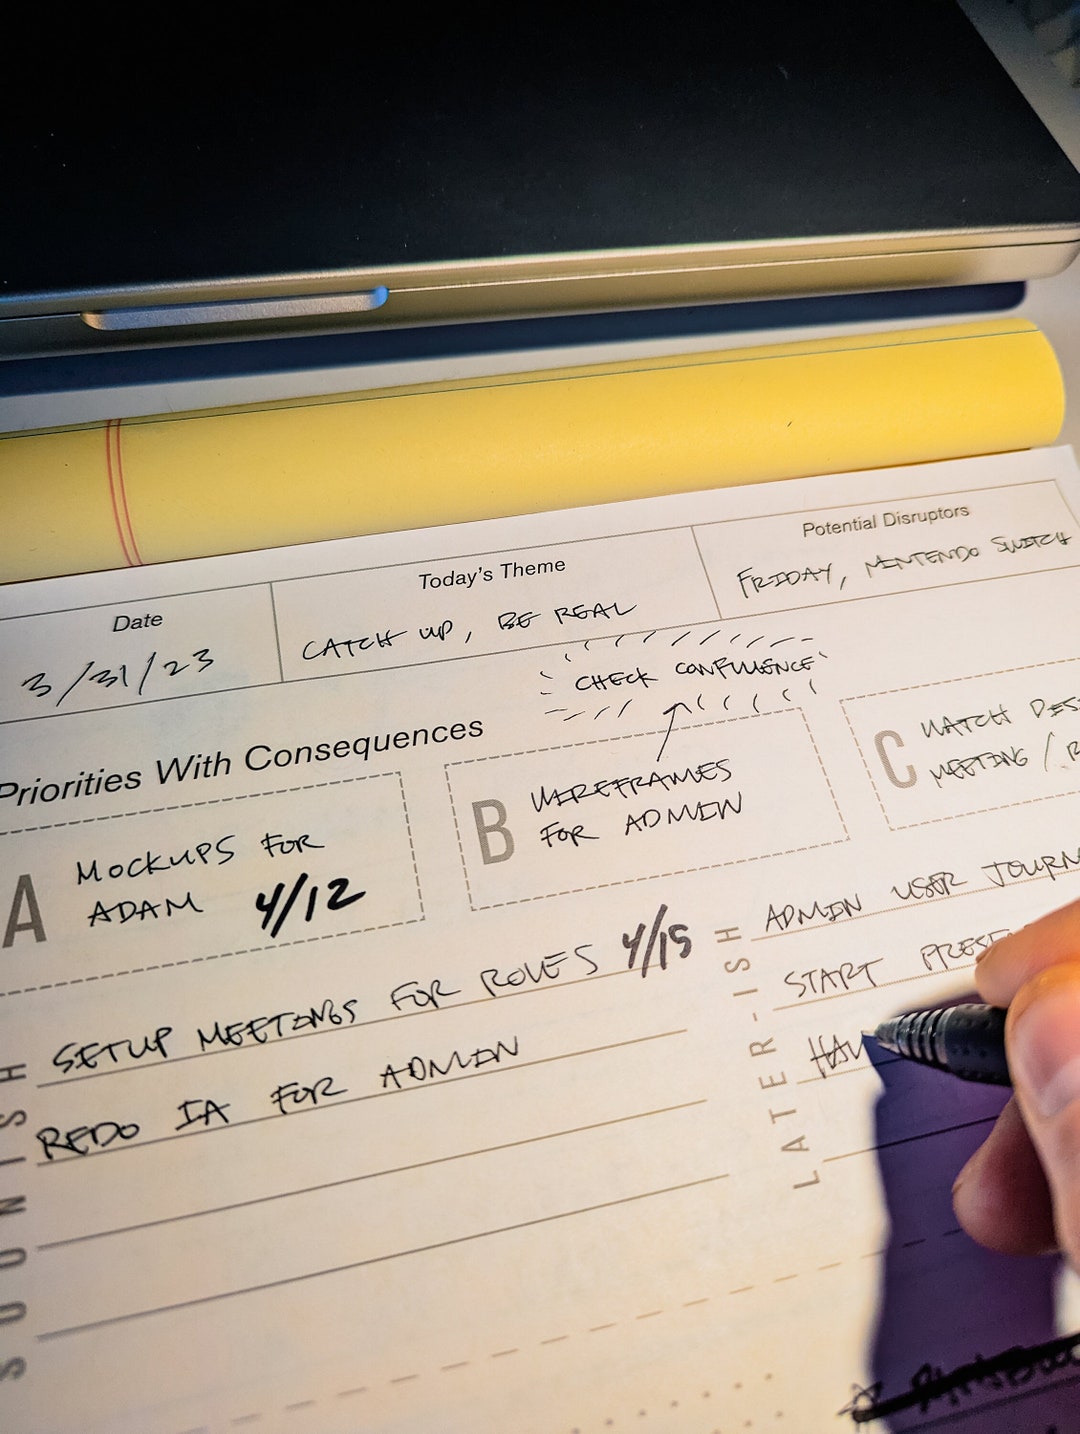 Date
3/31/23
Today's Theme
CATCH UP, BE REAL
Potential Disruptors
FRIDAY, NINTENDO SWITCH
CHECK CONFLUENCE
Priorities With Consequences
A
MOCKUPS FOR
ADAM 4/12
B
WIREFRAMES
FOR ADMIN
C
WATCH DES
MEETING / R
SOONISH
SETUP MEETINGS FOR ROLES 4/15
REDO IA FOR ADMIN
LATER-ISH
ADMIN USER JOURN
START PRESE
HAV